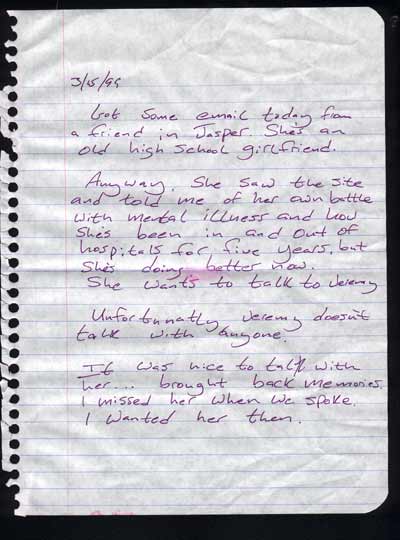 3/15/99
Got some email today from
a friend in Jasper. She's an
old high school girlfriend.
Anyway, she saw the site
and told me of her own battle
with mental illness and how
she's been in and out of
hospitals for five years, but
she's doing better now.
She wants to talk to Jeremy
Unfortunatly Jeremy doesn't
talk with anyone.
It was nice to talk with
her... brought back memories.
I missed her when we spoke.
I wanted her then.